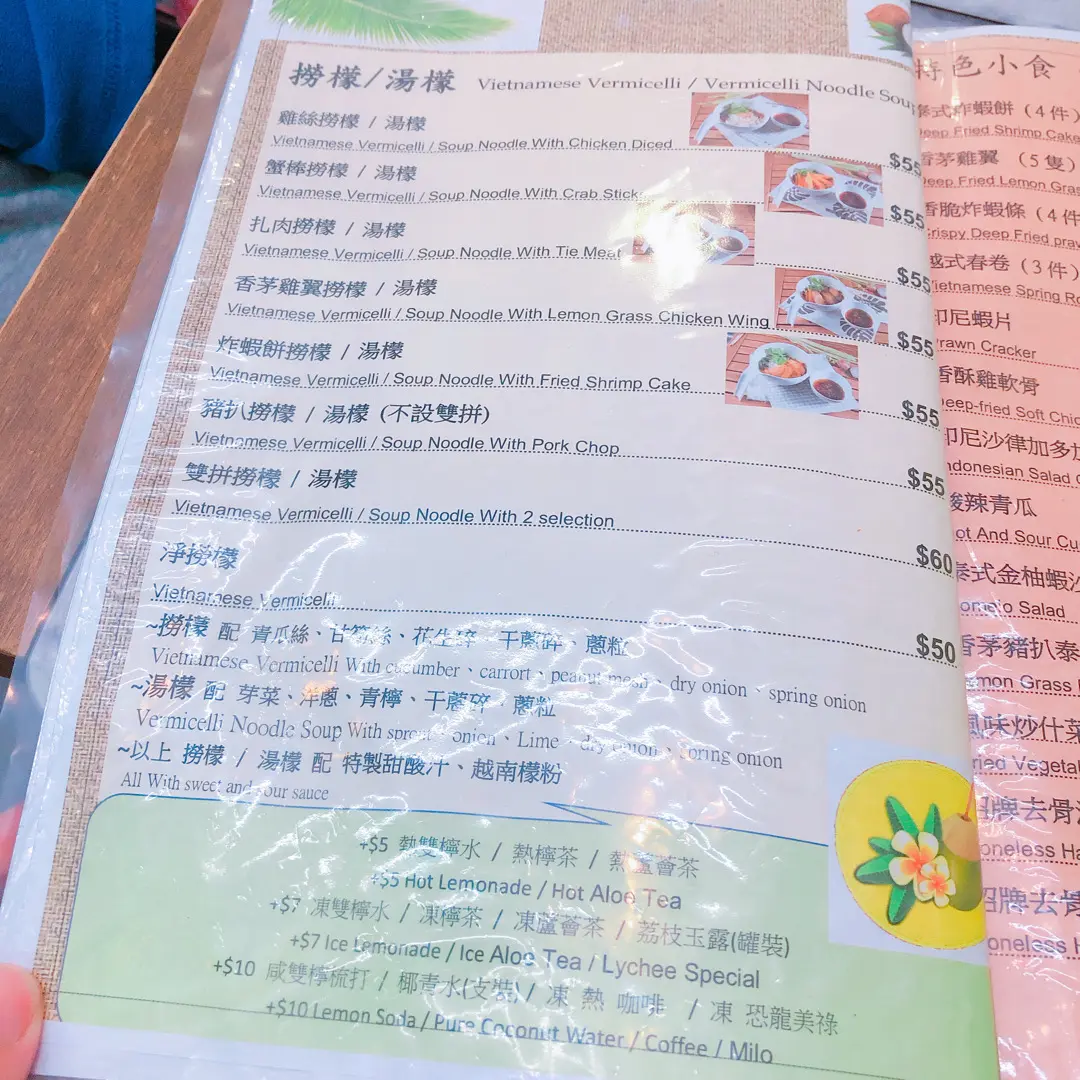 撈檬/湯檬 Vietnamese Vermicelli / Vermicelli Noodle Soup
雞絲撈檬 / 湯檬
Vietnamese Vermicelli / Soup Noodle With Chicken Diced
$55
蟹棒撈檬 / 湯檬
Vietnamese Vermicelli / Soup Noodle With Crab Stick
$55
扎肉撈檬 / 湯檬
Vietnamese Vermicelli / Soup Noodle With Tie Meat
$55
香茅雞翼撈檬 / 湯檬
Vietnamese Vermicelli / Soup Noodle With Lemon Grass Chicken Wing
$55
炸蝦餅撈檬 / 湯檬
Vietnamese Vermicelli / Soup Noodle With Fried Shrimp Cake
$55
豬扒撈檬 / 湯檬 (不設雙拼)
Vietnamese Vermicelli / Soup Noodle With Pork Chop
$55
雙拼撈檬 / 湯檬
Vietnamese Vermicelli / Soup Noodle With 2 selection
$60
淨撈檬
Vietnamese Vermicelli
$50
~撈檬 配 青瓜絲、甘筍絲、花生碎、干蔥碎、蔥粒
Vietnamese Vermicelli With cucumber、carrort、peanut mesh、dry onion、spring onion
~湯檬 配 芽菜、洋蔥、青檸、干蔥碎、蔥粒
Vermicelli Noodle Soup With sprout、onion、Lime、dry onion、spring onion
~以上 撈檬 / 湯檬 配 特製甜酸汁、越南檬粉
All With sweet and sour sauce
+$5 熱雙檸水 / 熱檸茶 / 熱蘆薈茶
+$5 Hot Lemonade / Hot Aloe Tea
+$7 凍雙檸水 / 凍檸茶 / 凍蘆薈茶 / 荔枝玉露(罐裝)
+$7 Ice Lemonade / Ice Aloe Tea / Lychee Special
+$10 咸雙檸梳打 / 椰青水(支裝) / 凍 熱 咖啡 / 凍 恐龍美祿
+$10 Lemon Soda / Pure Coconut Water / Coffee / Milo
特色小食
泰式炸蝦餅 (4件)
Deep Fried Shrimp Cake
香茅雞翼 (5隻)
Deep Fried Lemon Gras
香脆炸蝦條 (4件
Crispy Deep Fried praw
越式春卷 (3件)
Vietnamese Spring Ro
印尼蝦片
Prawn Cracker
香酥雞軟骨
Deep-fried Soft Chic
印尼沙律加多加
Indonesian Salad
酸辣青瓜
Hot And Sour Cu
泰式金柚蝦沙
Pomelo Salad
香茅豬扒泰
Lemon Grass
風味炒什菜
Fried Vegetab
招牌去骨
Boneless Ha
招牌去骨
Boneless H